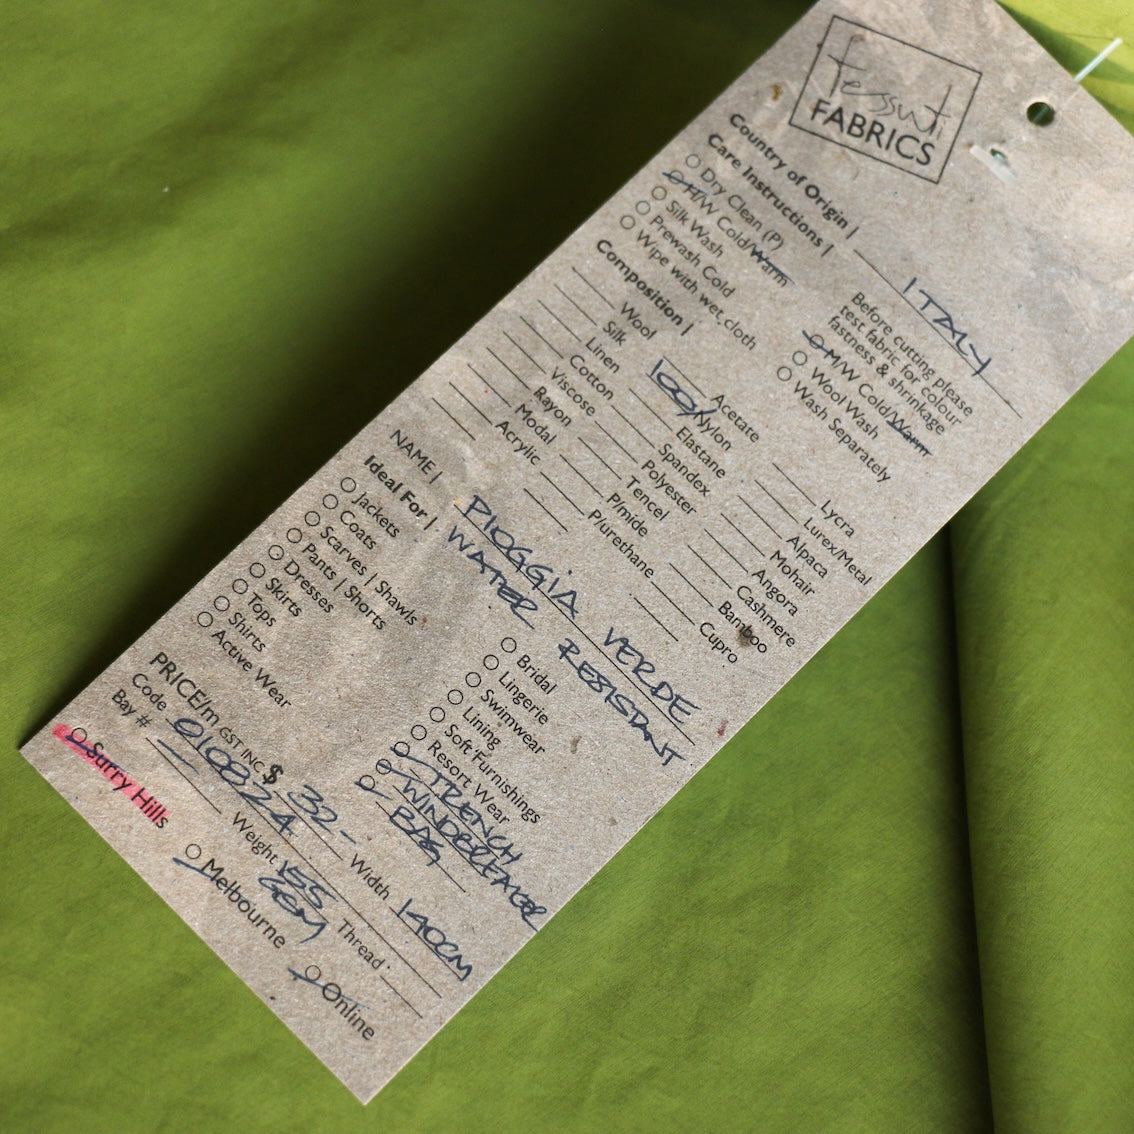 Tessuti
FABRICS
Country of Origin | ITALY
Care Instructions |
Dry Clean (P)
H/W Cold/Warm
Silk Wash
Prewash Cold
Wipe with wet cloth
Before cutting please
test fabric for colour
fastness & shrinkage
M/W Cold/Warm
Wool Wash
Wash Separately
Composition |
Wool
Silk
Linen
Cotton
Viscose
Rayon
Modal
Acrylic
Acetate
100% Nylon
Elastane
Spandex
Polyester
Tencel
P/mide
P/urethane
Lycra
Lurex/Metal
Alpaca
Mohair
Angora
Cashmere
Bamboo
Cupro
NAME | PIOGGIA VERDE
WATER RESISTANT
Ideal For |
Jackets
Coats
Scarves | Shawls
Pants | Shorts
Dresses
Skirts
Tops
Shirts
Active Wear
Bridal
Lingerie
Swimwear
Lining
Soft Furnishings
Resort Wear
TRENCH
WINDBREAKER
BAG
PRICE/m GST INC $ 32- Width 140CM
Code 010824 Weight 155 GSM Thread
Bay #
Surry Hills Melbourne Online